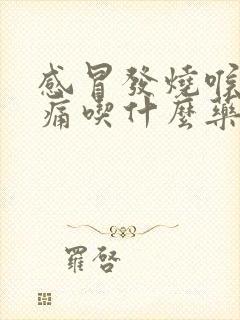 感冒發燒喉
痛喫什麼藥
羅啓